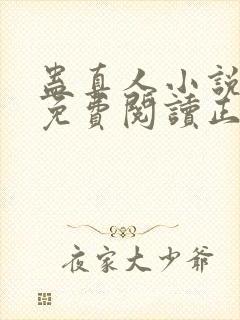 蛊真人小說
免費閱讀正
夜家大少爺